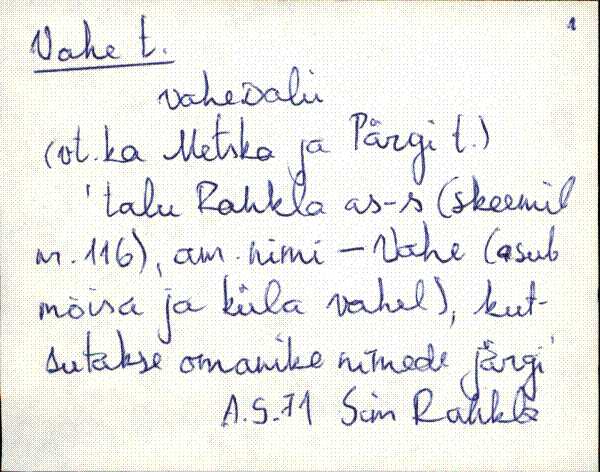 1
Vahe t.
vahedalu
(vt. ka Metska ja Pärgi t.)
'talu Rahkla as-s (skeemil
nr. 116), am. nimi – Vahe (asub
mõisa ja küla vahel), kut-
sutakse omanike nimede järgi'
A.S. 71 Sim Rahkla